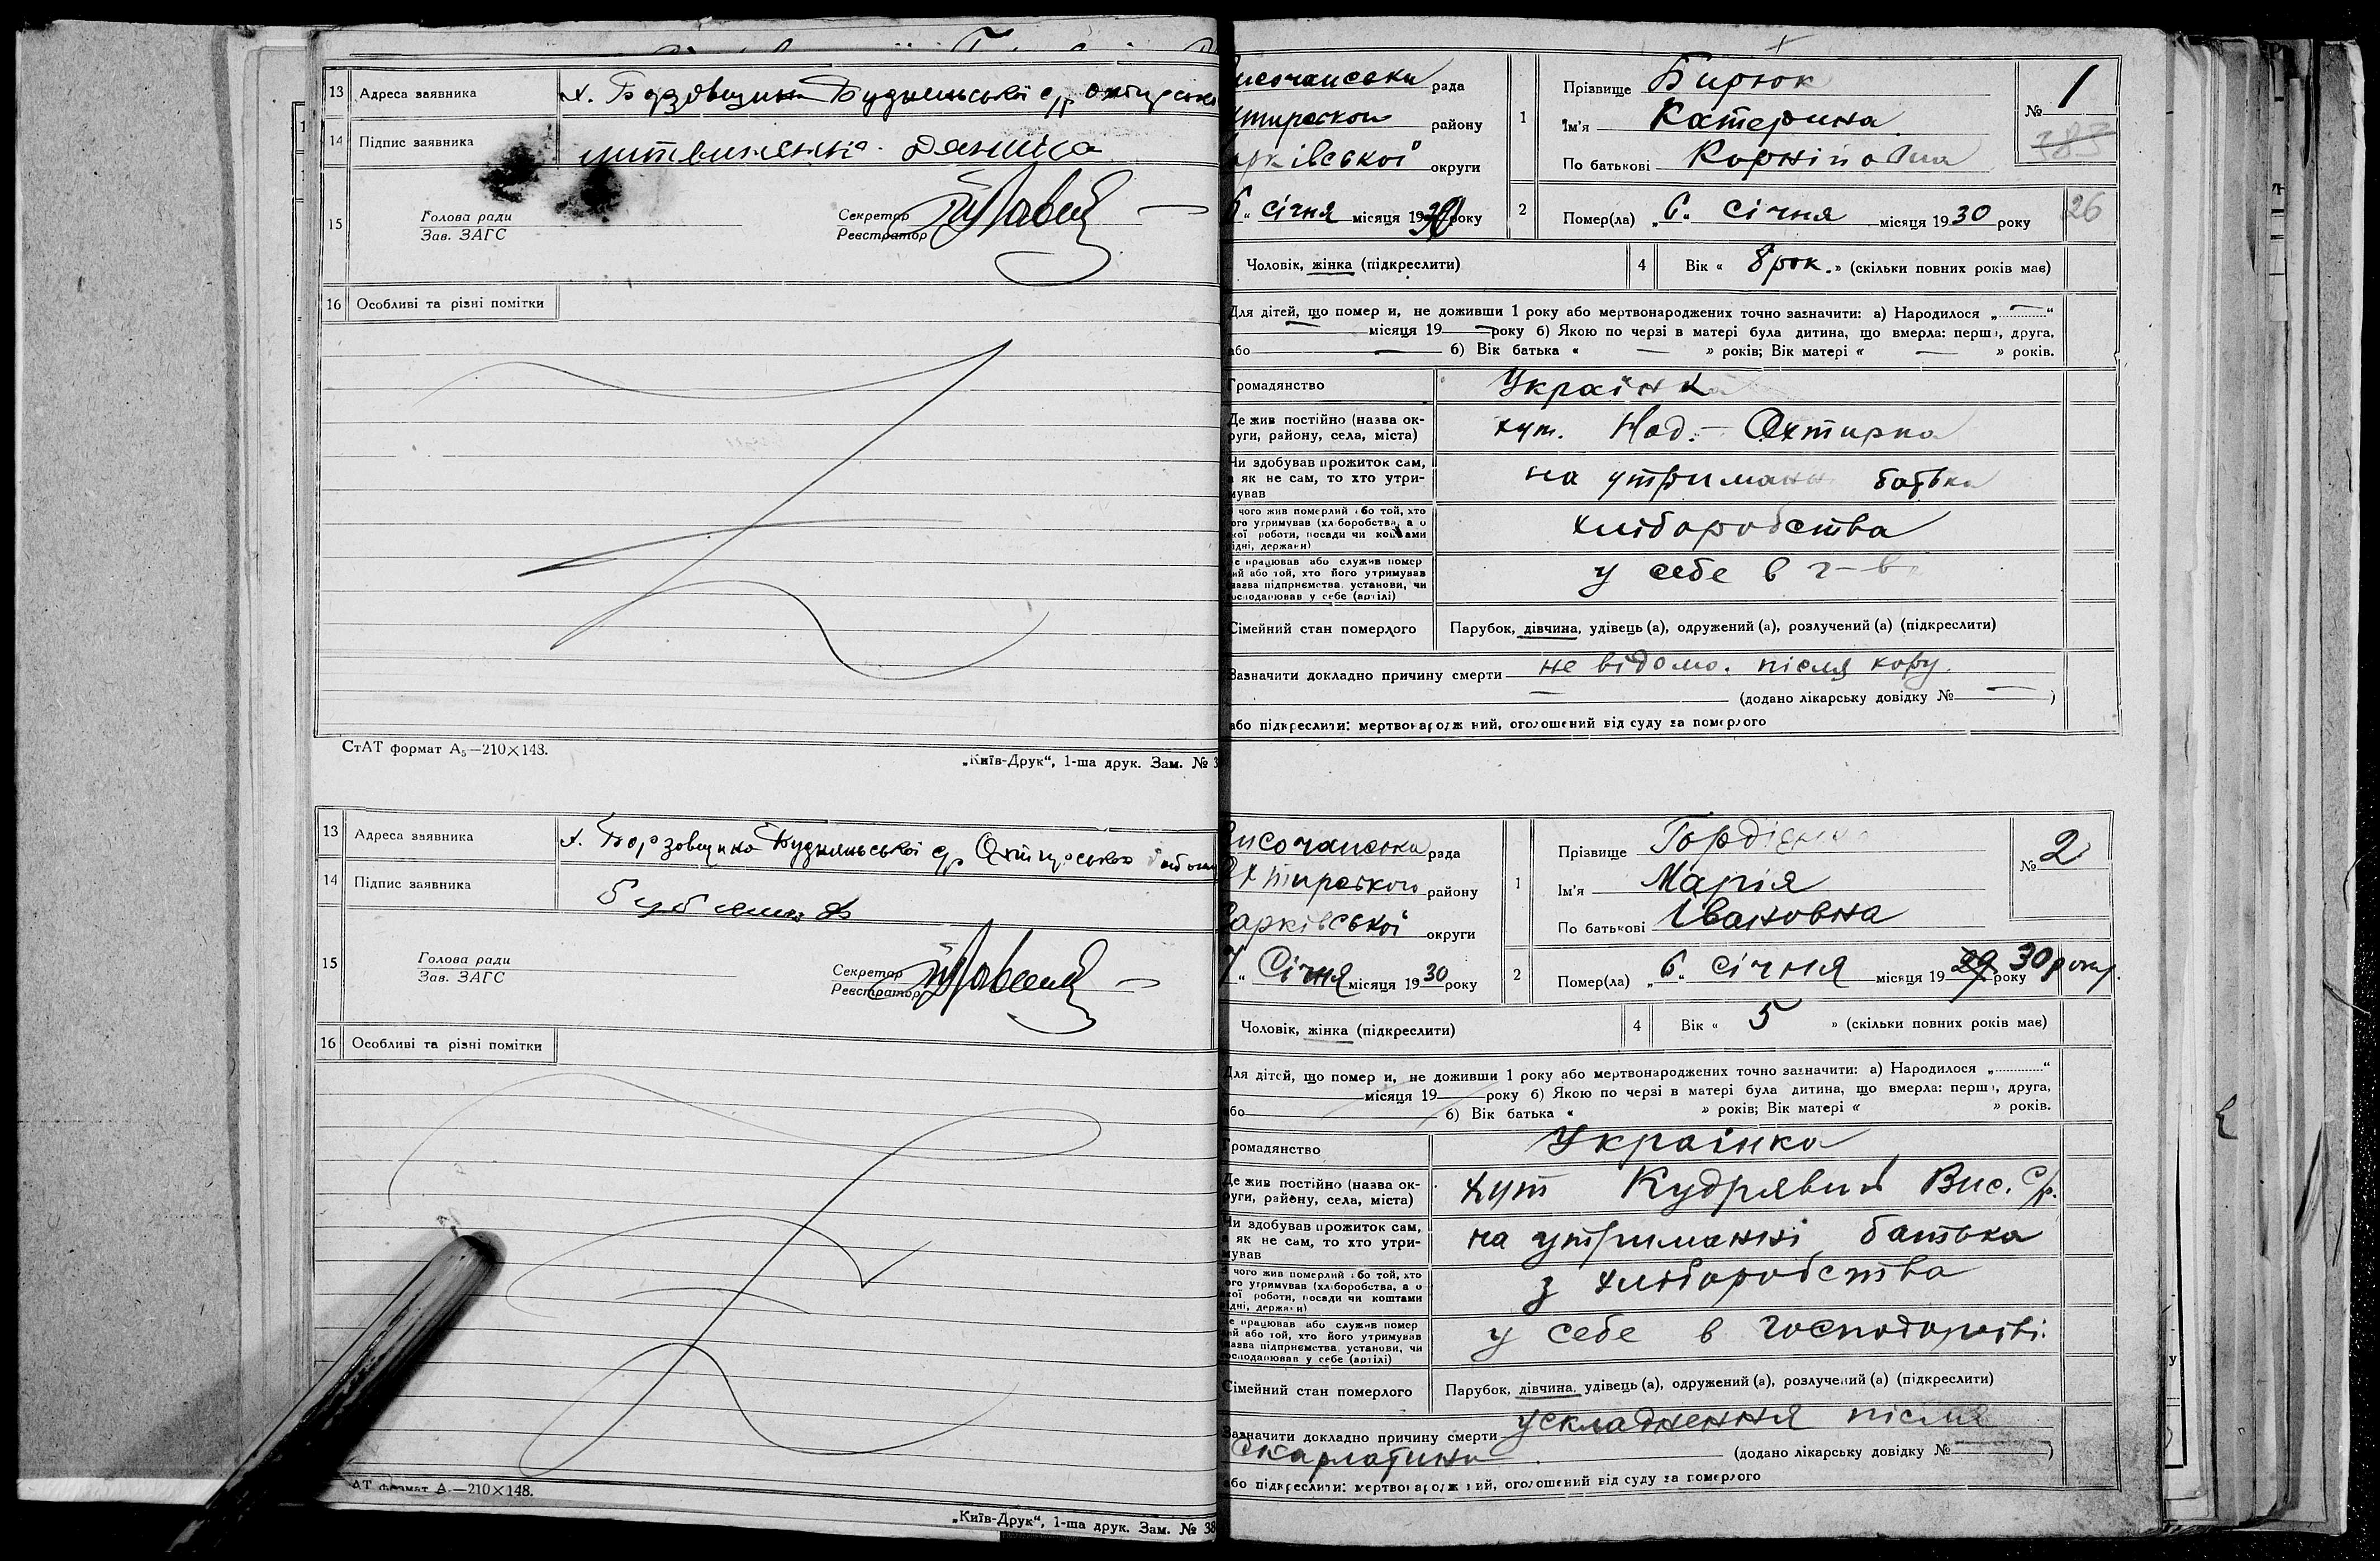 13 Адреса заявника х. Борзовщина Будненьської с/р Охтирсько
14 Підпис заявника
15 Голова ради Секретар
Зав. ЗАГС Реєстратор
16 Особливі та різні помітки
СтАТ формат А₅—210×148.
„Київ-Друк“, 1-ша друк. Зам. № 3
13 Адреса заявника х. Борзовщина Будненьської с/р Охтирського
14 Підпис заявника
15 Голова ради Секретар
Зав. ЗАГС Реєстратор
16 Особливі та різні помітки
АТ формат А₅—210×148.
„Київ-Друк“, 1-ша друк. Зам. № 38
исочанська рада
хтирсkого району
арківської округи
6“ січня місяця 1930 року
1 Прізвище Бирюк
Ім'я Катерина
По батькові Корніівна
№ 1
385
2 Помер(ла) „6“ січня місяця 1930 року
26
Чоловік, жінка (підкреслити) 4 Вік « 8 рок. » (скільки повних років має)
Для дітей, що помер и, не доживши 1 року або мертвонароджених точно зазначити: а) Народилося „—“
— місяця 19— року б) Якою по черзі в матері була дитина, що вмерла: перш , друга,
або — б) Вік батька « — » років; Вік матері « — » років.
Громадянство Українка
Де жив постійно (назва ок-
руги, району, села, міста) хут. Над.-Охтирка
Чи здобував прожиток сам,
а як не сам, то хто утри-
мував на утриман батька
чого жив померлий або той, хто
ого утримував (хліборобства, а о
кої роботи, посади чи коштами
ідні, держави) хліборобства
е працював або служив помер
ий або той, хто його утримував
назва підприємства, установи, чи
осподарював у себе (артілі) у себе в г-ві
Сімейний стан померлого Парубок, дівчина, удівець (а), одружений (а), розлучений (а) (підкреслити)
Зазначити докладно причину смерти не відомо. після кору.
— (додано лікарську довідку № — )
або підкреслити: мертвонародж ний, оголошений від суду за померлого
Височанська рада
Охтирського району
Харківської округи
7“ Січня місяця 1930 року
1 Прізвище Гордієнко
Ім'я Марія
По батькові Івановна
№ 2
2 Помер(ла) „6“ січня місяця 19 29 року 30 року.
Чоловік, жінка (підкреслити) 4 Вік « 5 » (скільки повних років має)
Для дітей, що помер и, не доживши 1 року або мертвонароджених точно зазначити: а) Народилося „......“
місяця 19 року б) Якою по черзі в матері була дитина, що вмерла: перш , друга,
або б) Вік батька « » років; Вік матері « » років.
Громадянство Українка
Де жив постійно (назва ок-
руги, району, села, міста) хут Кудрявий Вис. с/р.
Чи здобував прожиток сам,
а як не сам, то хто утри-
мував на утриманні батька
чого жив померлий або той, хто
ого утримував (хліборобства, а о
кої роботи, посади чи коштами
ідні, держави) з хліборобства
е працював або служив помер
ий або той, хто його утримував
назва підприємства, установи, чи
осподарював у себе (артілі) у себе в господарстві.
Сімейний стан померлого Парубок, дівчина, удівець (а), одружений (а), розлучений (а) (підкреслити)
Зазначити докладно причину смерти ускладнення після
скарлатини (додано лікарську довідку № )
або підкреслити: мертвонародж ний, оголошений від суду за померлого